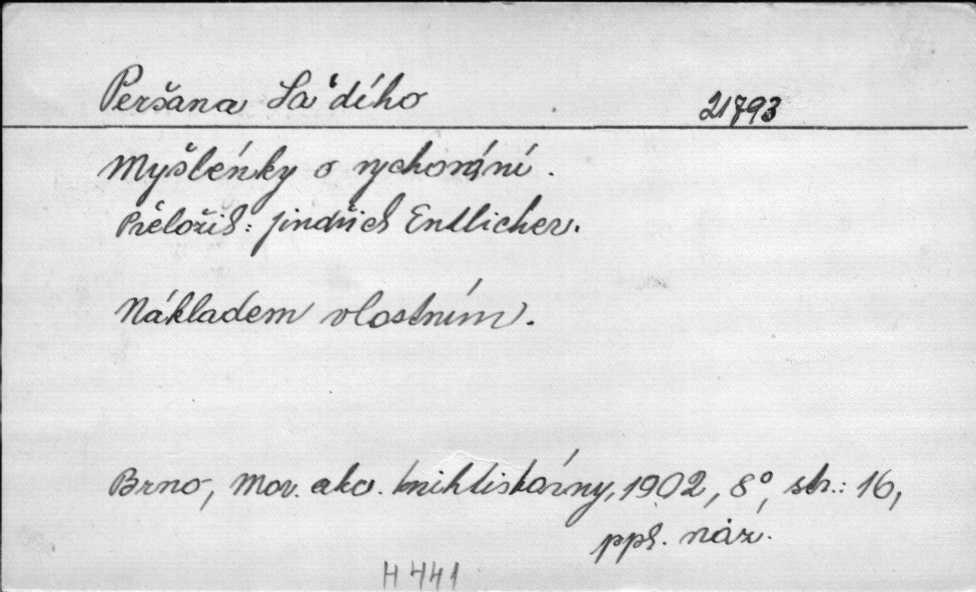 Peršana Sa'dího 21793
Myšlénky o vychování.
Přeložil: Jindřich Entlicher.
Nákladem vlastním.
Brno, Mor. akc. knihtiskárny, 1902, 8°, str.: 16,
ppl. náz.
H 441